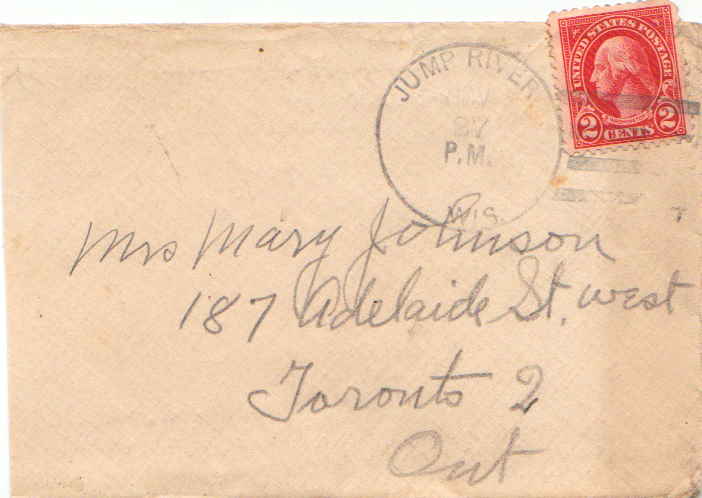 JUMP RIVER
27
P.M.
WIS.
UNITED STATES POSTAGE
WASHINGTON
2 CENTS 2
Mrs Mary Johnson
187 Adelaide St. west
Toronto 2
Ont